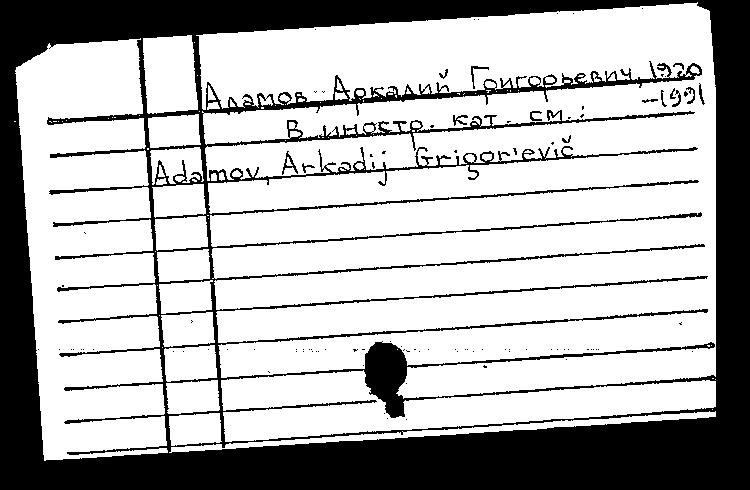 Адамов, Аркадий Григорьевич, 1920
–1991
В иностр. кат. см.:
Adamov, Arkadij Grigor'evič